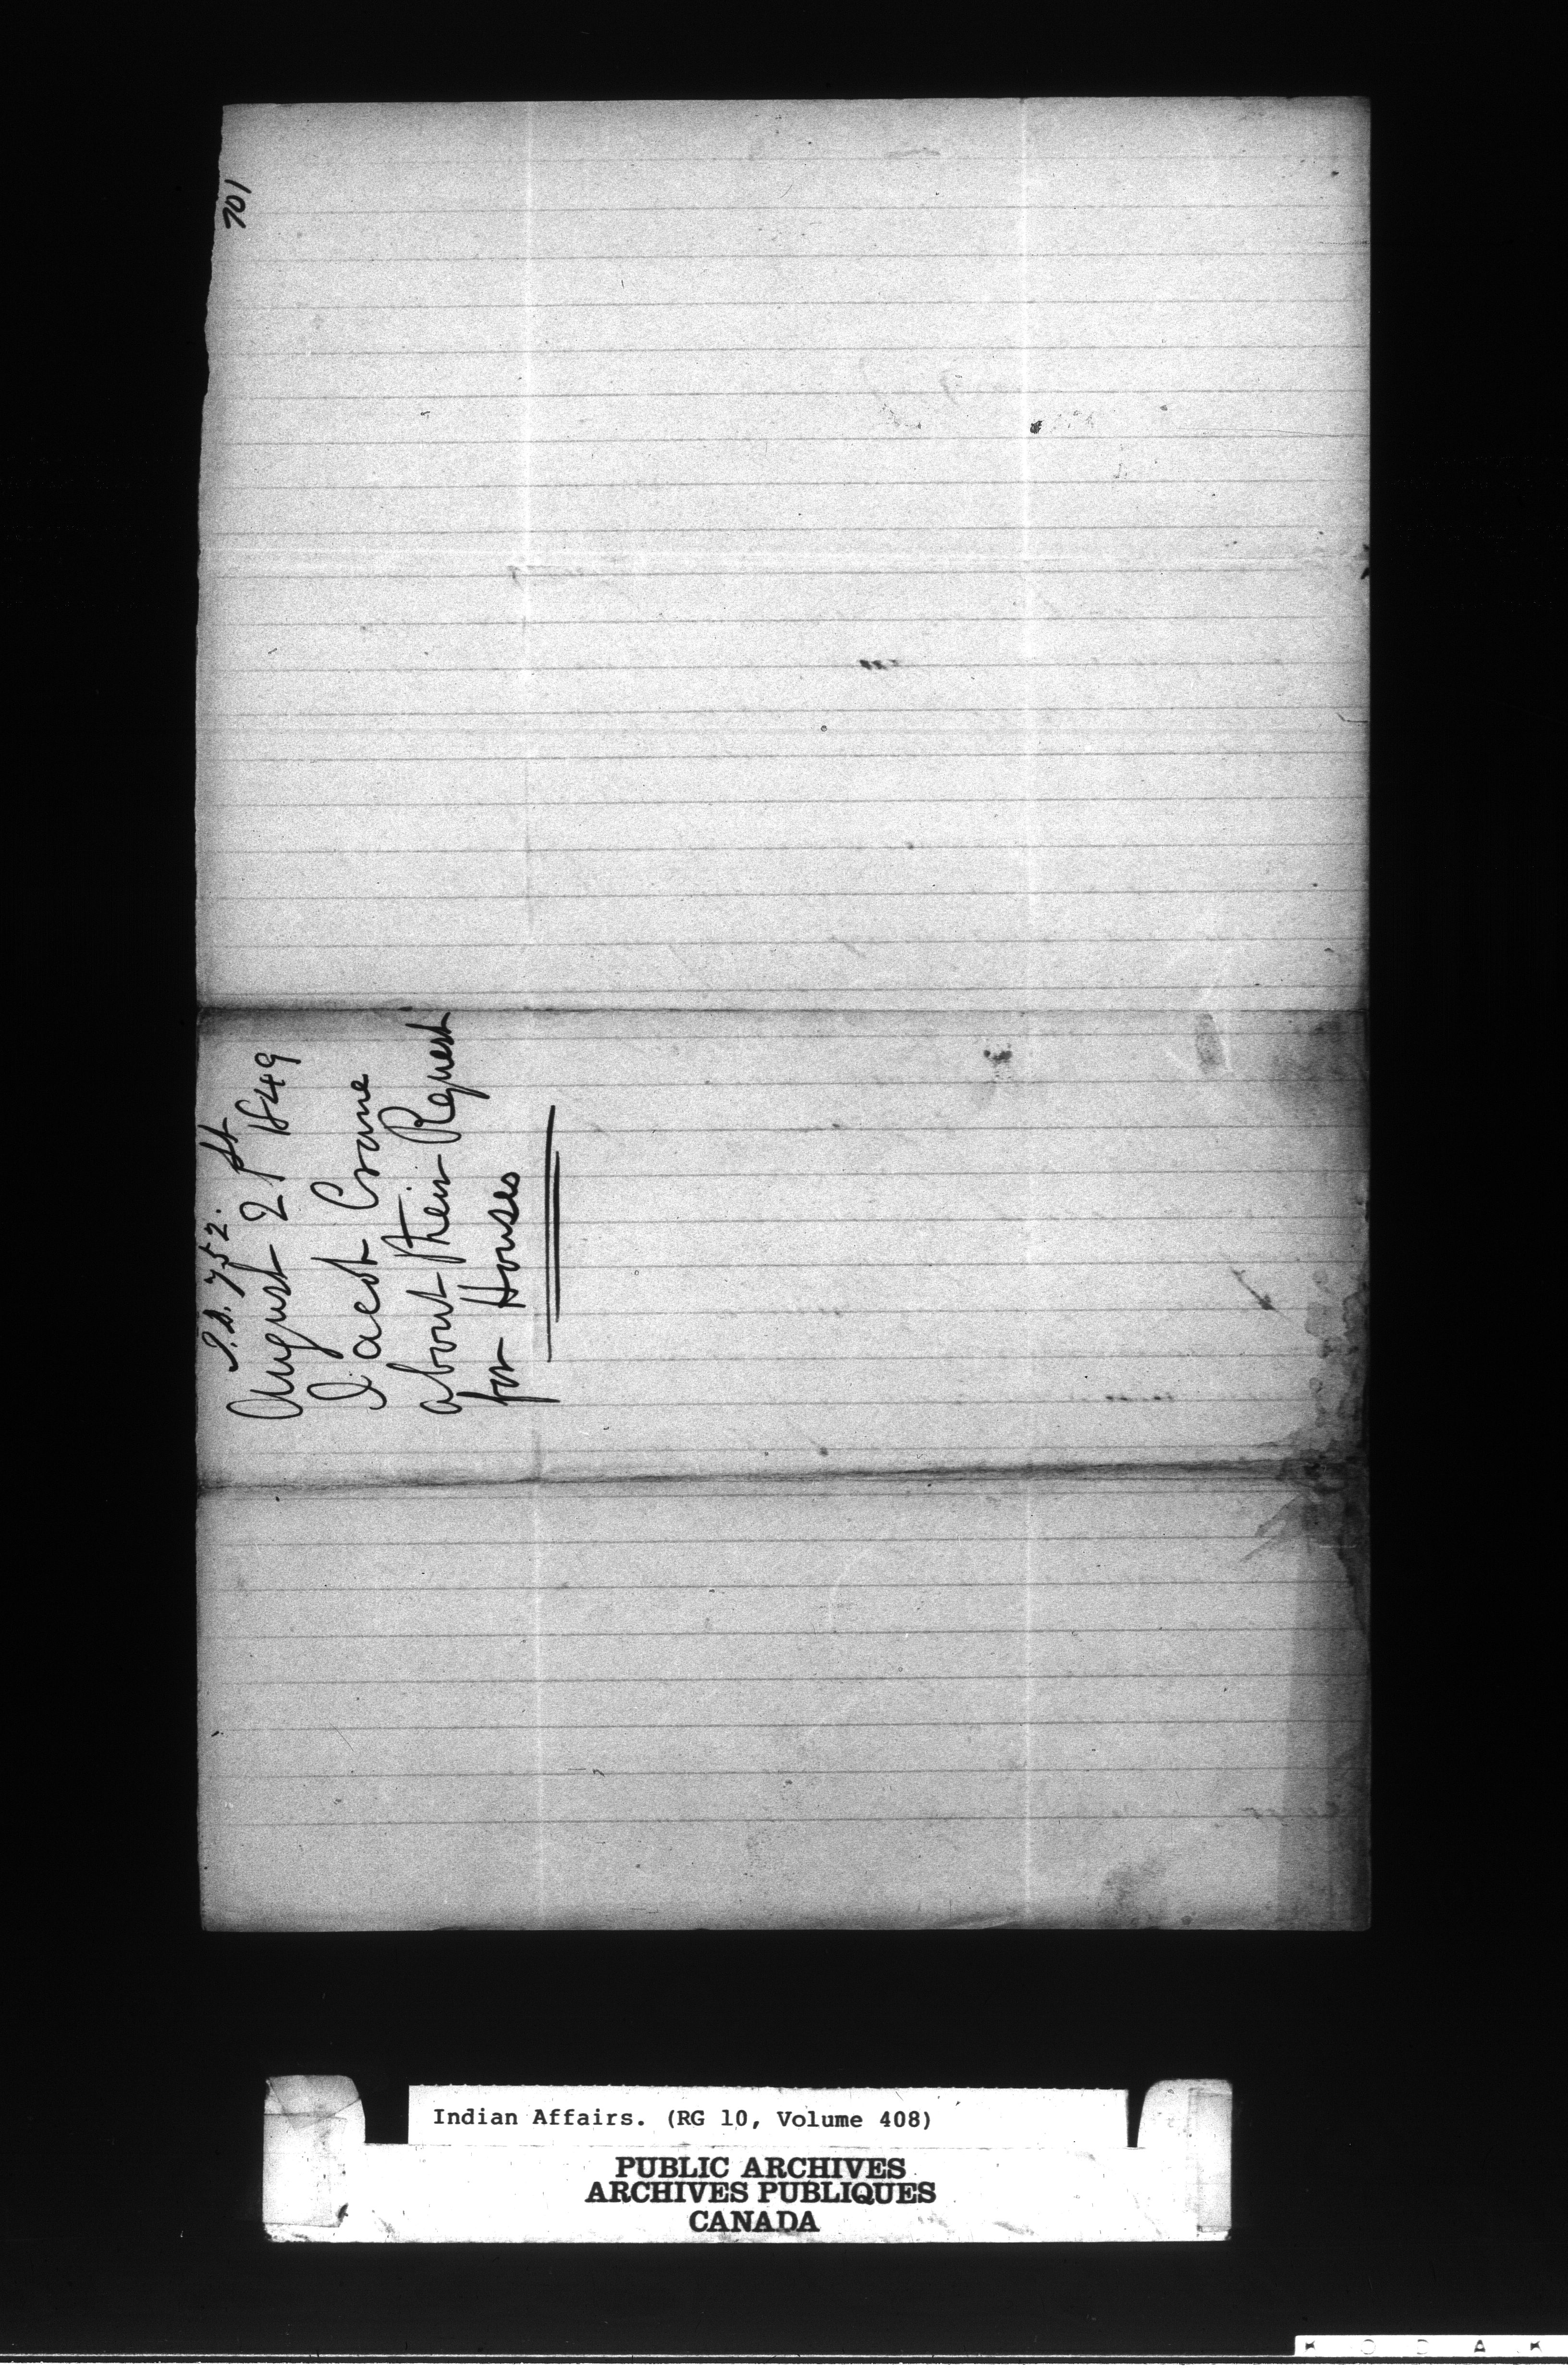 701
I.D. 752.
August 21st 1849
Jacob Crane
about their Request
for Houses
Indian Affairs. (RG 10, Volume 408)
PUBLIC ARCHIVES
ARCHIVES PUBLIQUES
CANADA
KODAK